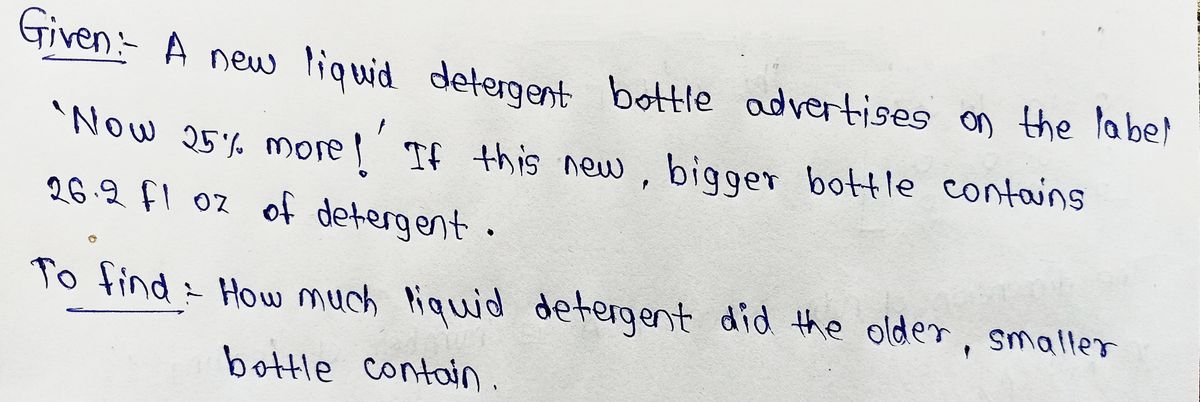 Given:- A new liquid detergent bottle advertises on the label
'Now 25% more!' If this new, bigger bottle contains
26.2 fl oz of detergent.
To find :- How much liquid detergent did the older, smaller
bottle contain.